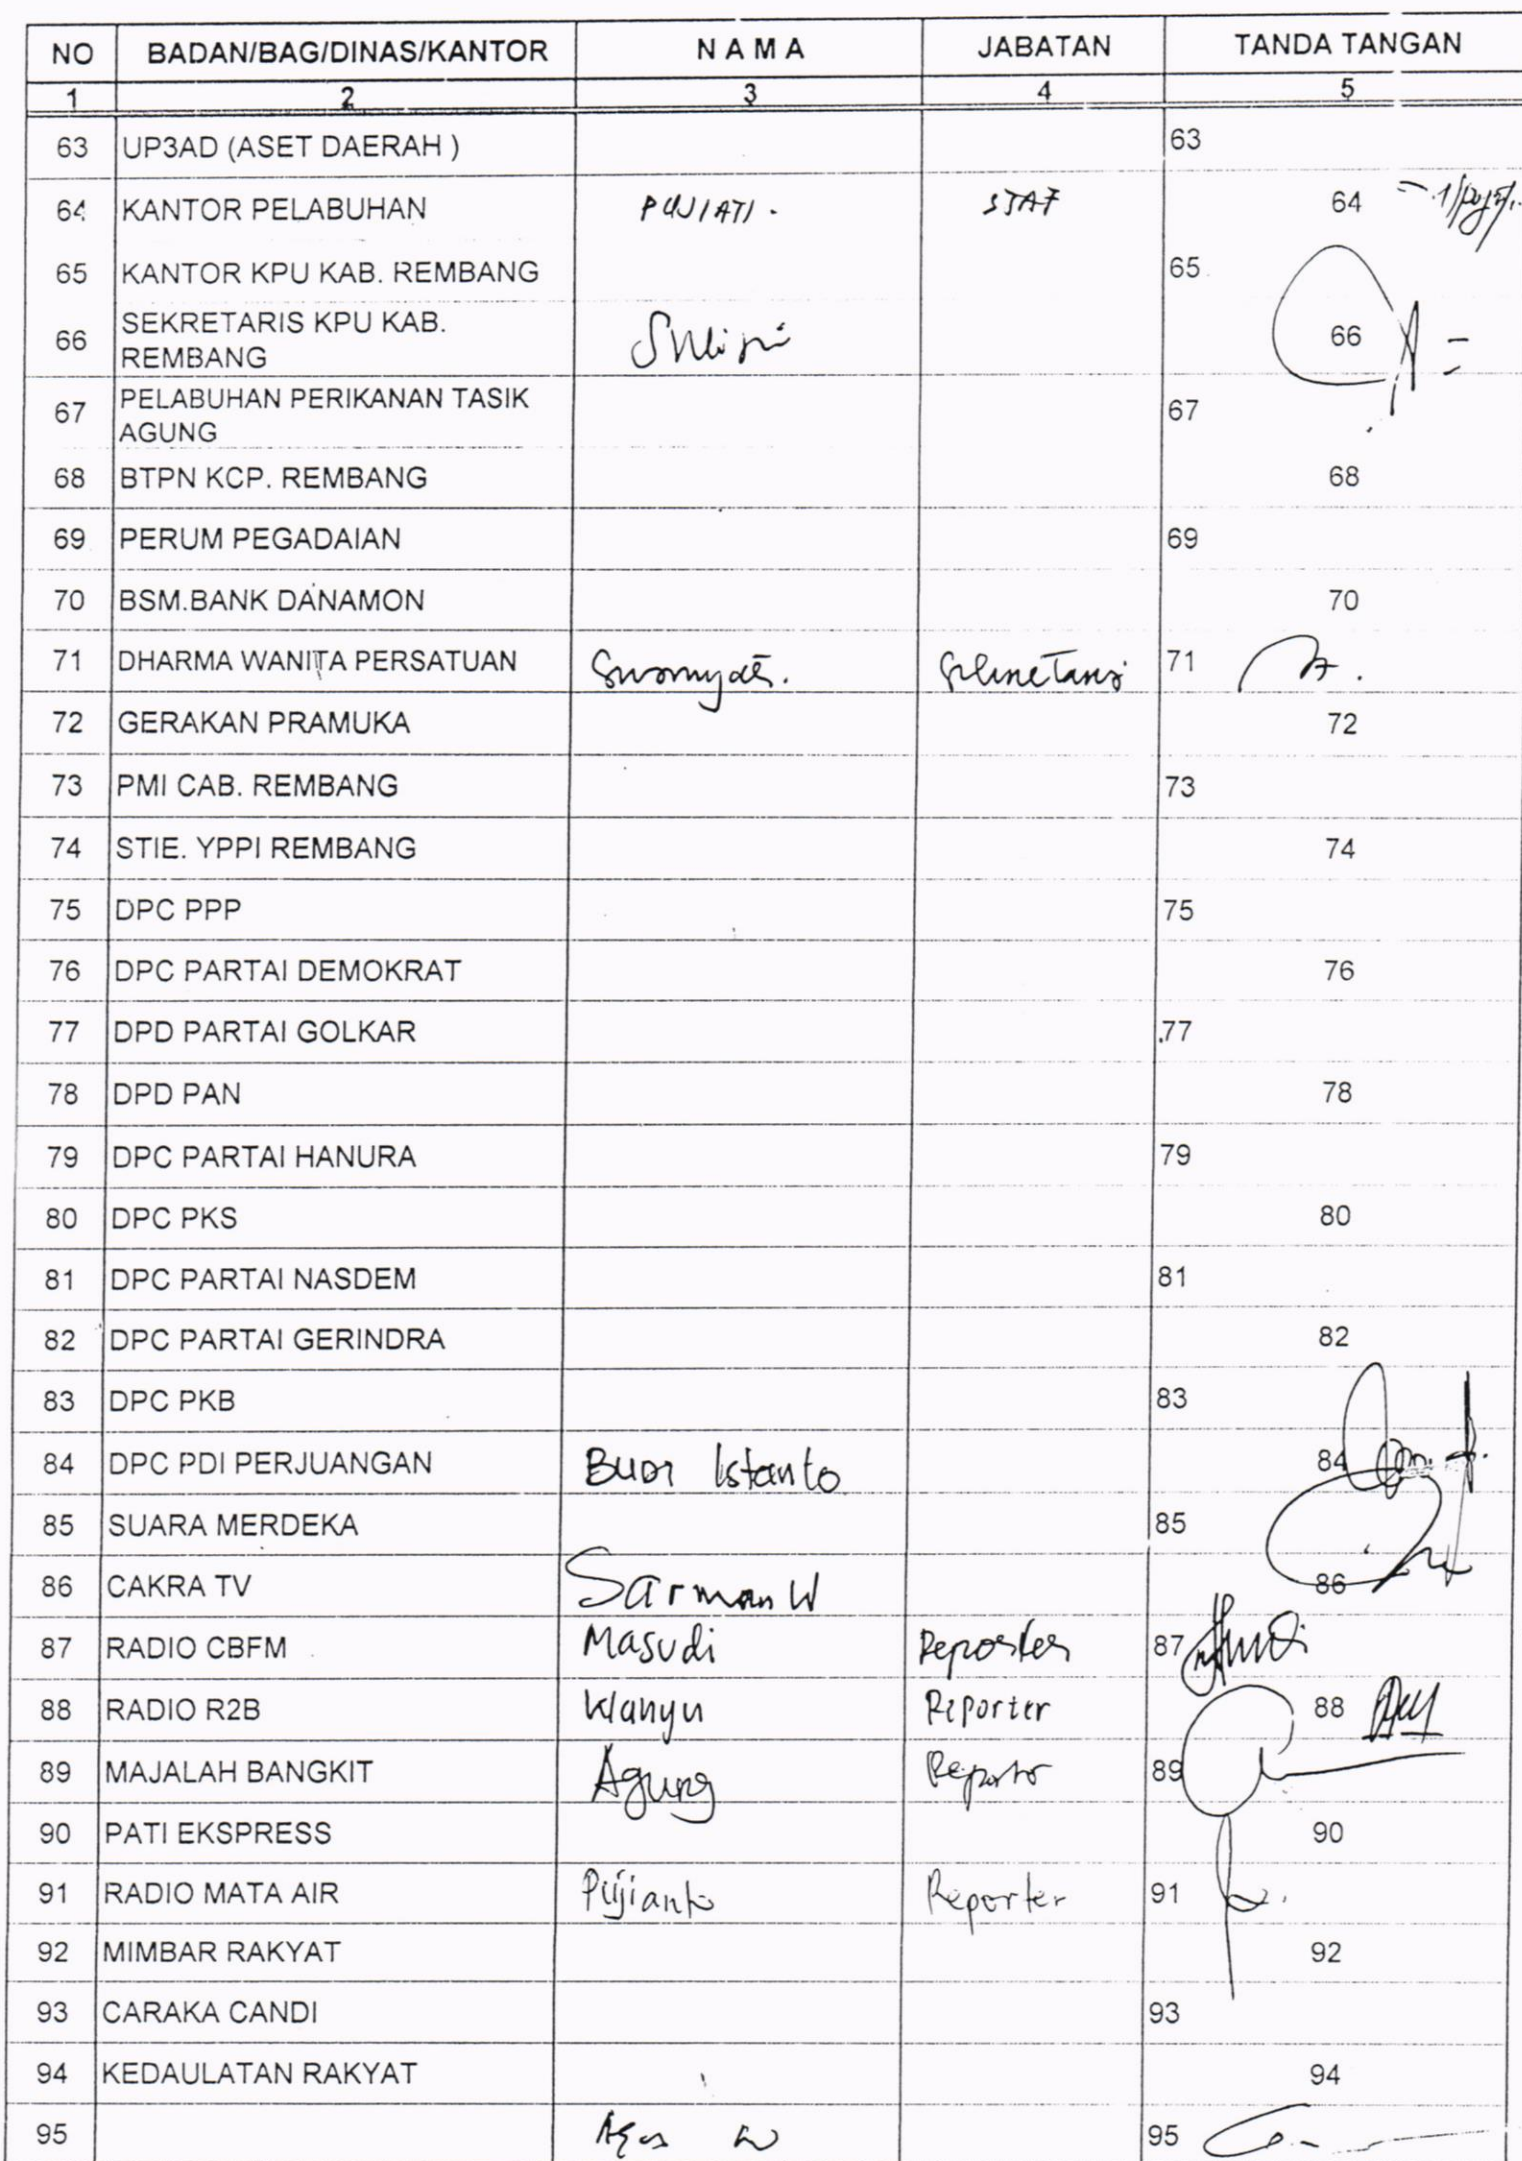 NO BADAN/BAG/DINAS/KANTOR N A M A JABATAN TANDA TANGAN
1 2 3 4 5
63 UP3AD (ASET DAERAH ) 63
64 KANTOR PELABUHAN PUJIATI. STAF 64
65 KANTOR KPU KAB. REMBANG 65
66 SEKRETARIS KPU KAB. 66
REMBANG
67 PELABUHAN PERIKANAN TASIK 67
AGUNG
68 BTPN KCP. REMBANG 68
69 PERUM PEGADAIAN 69
70 BSM.BANK DANAMON 70
71 DHARMA WANITA PERSATUAN 71
72 GERAKAN PRAMUKA 72
73 PMI CAB. REMBANG 73
74 STIE. YPPI REMBANG 74
75 DPC PPP 75
76 DPC PARTAI DEMOKRAT 76
77 DPD PARTAI GOLKAR 77
78 DPD PAN 78
79 DPC PARTAI HANURA 79
80 DPC PKS 80
81 DPC PARTAI NASDEM 81
82 DPC PARTAI GERINDRA 82
83 DPC PKB 83
84 DPC PDI PERJUANGAN Budi Istanto 84
85 SUARA MERDEKA 85
86 CAKRA TV Sarman W 86
87 RADIO CBFM Masudi Reporter 87
88 RADIO R2B Wahyu Reporter 88
89 MAJALAH BANGKIT Agung Reporter 89
90 PATI EKSPRESS 90
91 RADIO MATA AIR Pujianto Reporter 91
92 MIMBAR RAKYAT 92
93 CARAKA CANDI 93
94 KEDAULATAN RAKYAT 94
95 Agus W 95